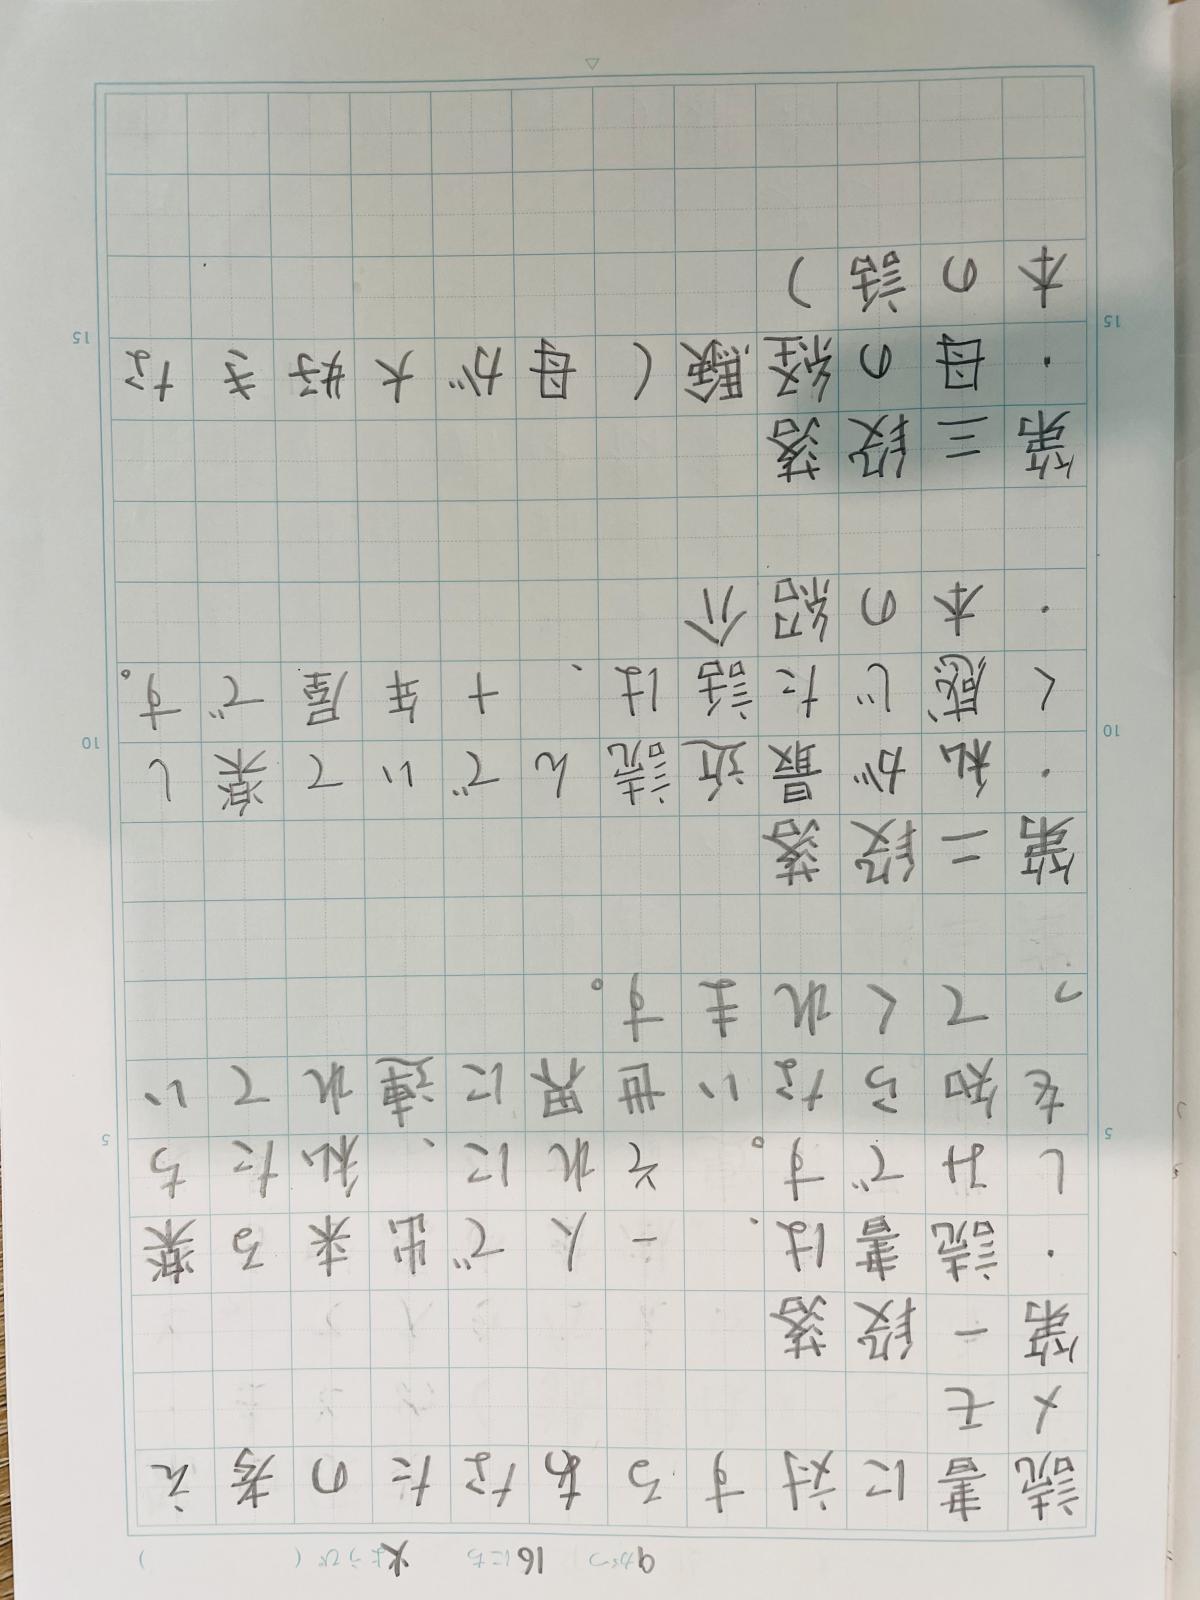 9がつ 16にち 火ようび ( )
読書に対するあなたの考え
メモ
第一段落
・読書は、一人で出来る楽
5 しみです。それに、私たち 5
を知らない世界に連れてい
ってくれます。
第二段落
10 ・私が最近読んでいて楽し 10
く感じた話は、十年屋です。
・本の紹介
第三段落
15 ・母の経験(母が大好きな 15
本の話)